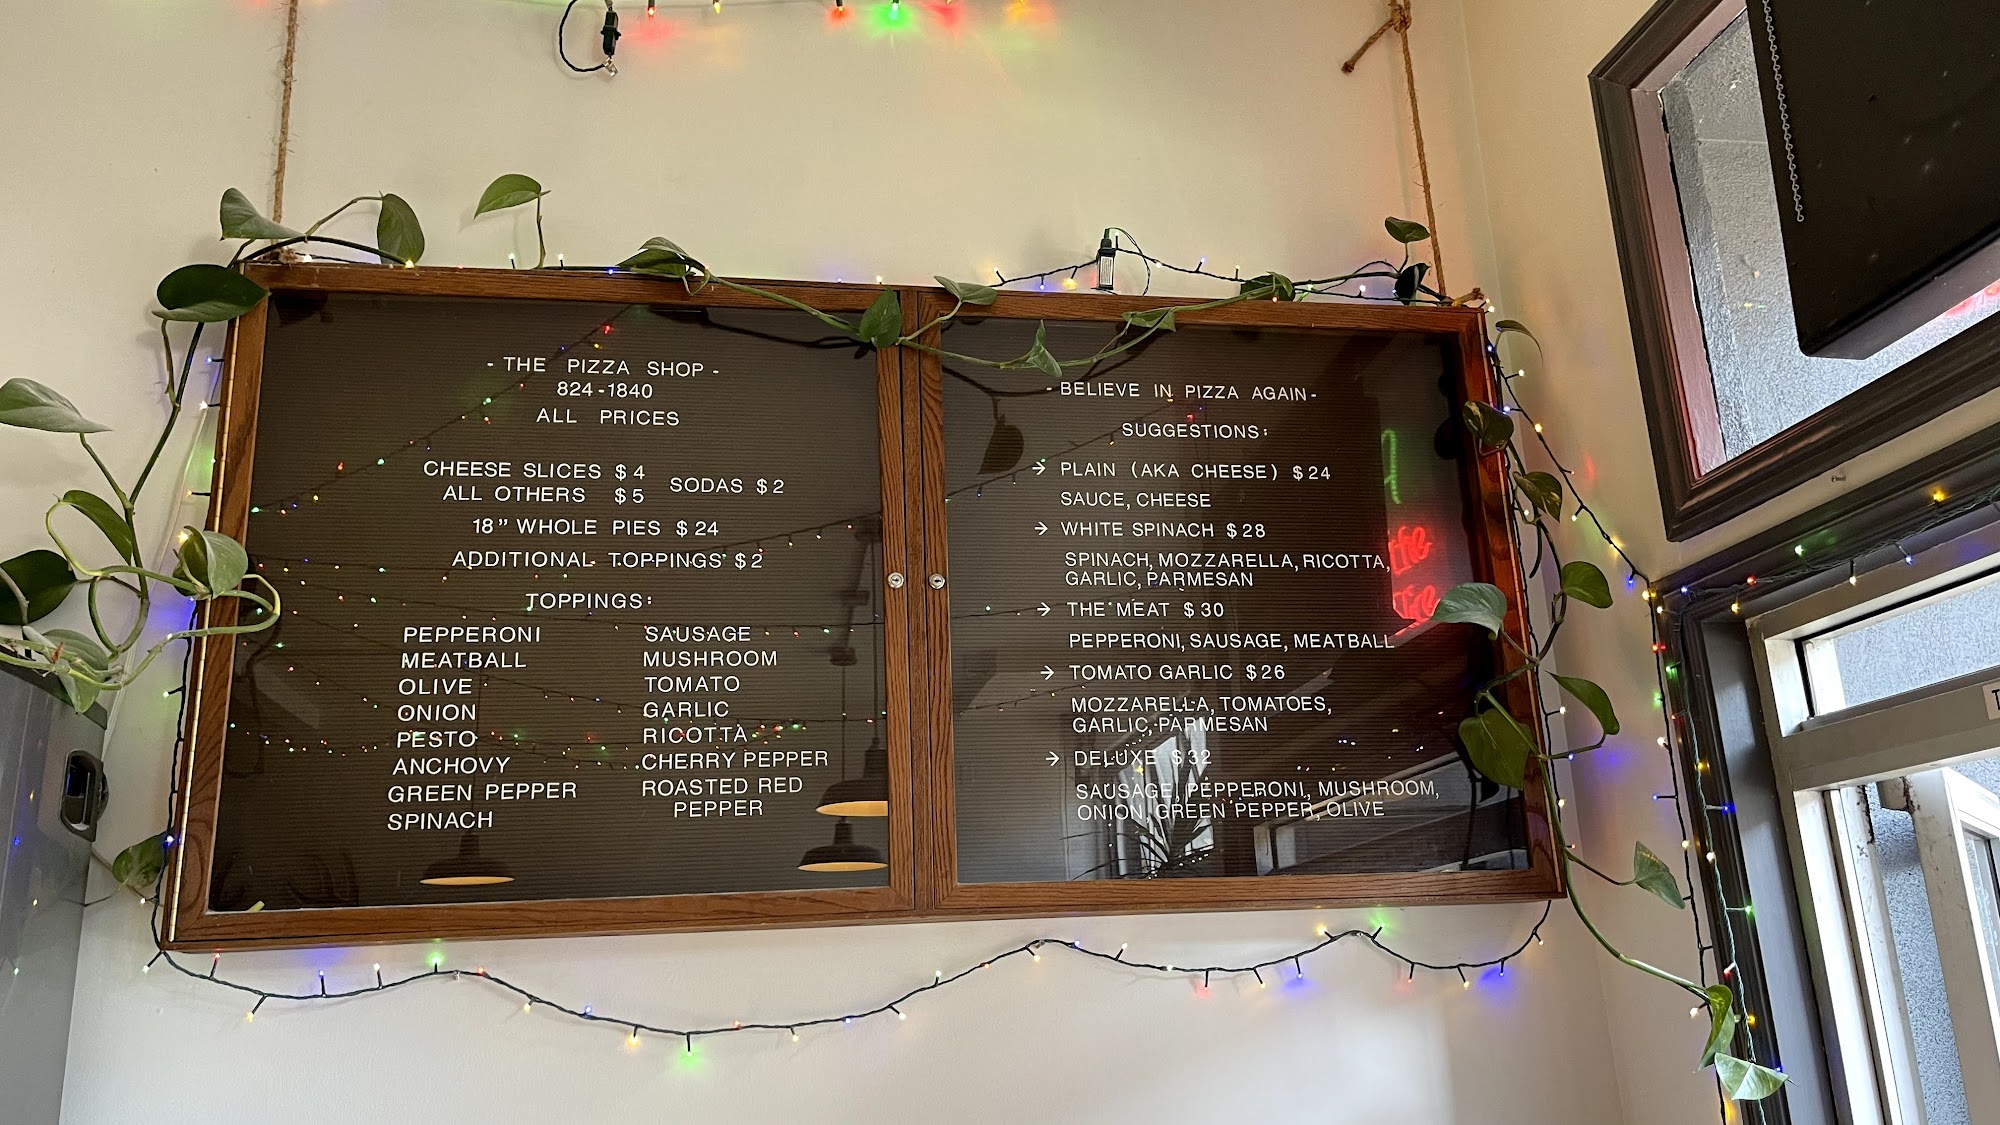 - THE PIZZA SHOP -
824-1840
ALL PRICES
CHEESE SLICES $4
ALL OTHERS $5
SODAS $2
18" WHOLE PIES $24
ADDITIONAL TOPPINGS $2
TOPPINGS:
PEPPERONI
MEATBALL
OLIVE
ONION
PESTO
ANCHOVY
GREEN PEPPER
SPINACH
SAUSAGE
MUSHROOM
TOMATO
GARLIC
RICOTTA
CHERRY PEPPER
ROASTED RED
PEPPER
- BELIEVE IN PIZZA AGAIN -
SUGGESTIONS:
→ PLAIN (AKA CHEESE) $24
SAUCE, CHEESE
→ WHITE SPINACH $28
SPINACH, MOZZARELLA, RICOTTA,
GARLIC, PARMESAN
→ THE MEAT $30
PEPPERONI, SAUSAGE, MEATBALL
→ TOMATO GARLIC $26
MOZZARELLA, TOMATOES,
GARLIC, PARMESAN
→ DELUXE $32
SAUSAGE, PEPPERONI, MUSHROOM,
ONION, GREEN PEPPER, OLIVE